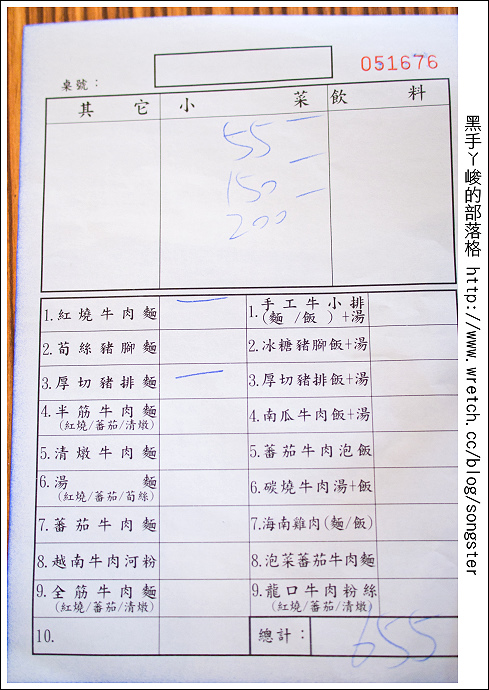 051676
桌號：
其它 小菜 飲料
55 一
150 一
200 一
1.紅燒牛肉麵 一
2.荀絲豬腳麵
3.厚切豬排麵 一
4.半筋牛肉麵
(紅燒/蕃茄/清燉)
5.清燉牛肉麵
6.湯麵
(紅燒/蕃茄/荀絲)
7.蕃茄牛肉麵
8.越南牛肉河粉
9.全筋牛肉麵
(紅燒/蕃茄/清燉)
10.
1.手工牛小排
(麵/飯)+湯
2.冰糖豬腳飯+湯
3.厚切豬排飯+湯
4.南瓜牛肉飯+湯
5.蕃茄牛肉泡飯
6.碳燒牛肉湯+飯
7.海南雞肉(麵/飯)
8.泡菜蕃茄牛肉麵
9.龍口牛肉粉絲
(紅燒/蕃茄/清燉)
總計： 655
黑手ㄚ峻的部落格 http://www.wretch.cc/blog/songster